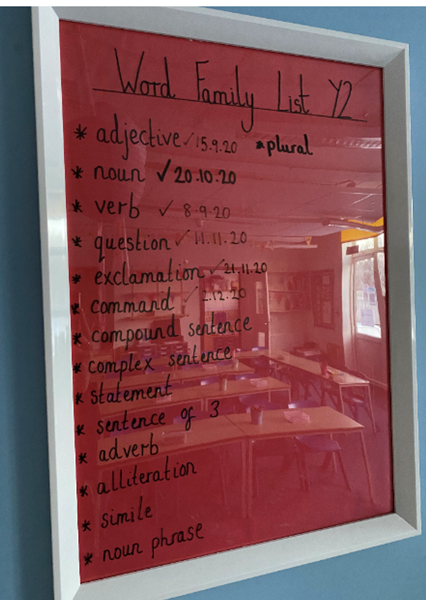 Word Family List Y2
* adjective ✓ 15.9.20 * plural
* noun ✓ 20.10.20
* verb ✓ 8.9.20
* question ✓ 11.11.20
* exclamation ✓ 21.11.20
* command ✓ 2.12.20
* compound sentence
* complex sentence
* statement
* sentence of 3
* adverb
* alliteration
* simile
* noun phrase